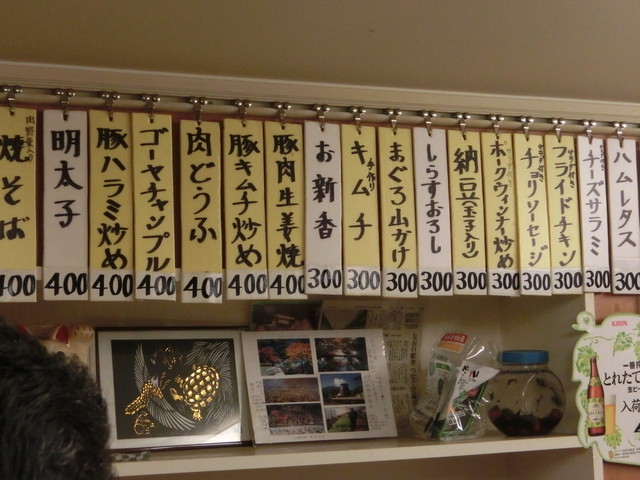 ハムレタス
300
チーズサラミ
300
フライドチキン
300
チョリソーセージ
300
ポークウィンナー炒め
300
納豆(玉子入り)
300
しらすおろし
300
まぐろ山かけ
300
手作り
キムチ
300
お新香
300
豚肉生姜焼
400
豚キムチ炒め
400
肉どうふ
400
ゴーヤチャンプル
400
豚ハラミ炒め
400
明太子
400
肉野菜入り
焼そば
400
KIRIN
一番搾
とれたて
生ビー
入荷